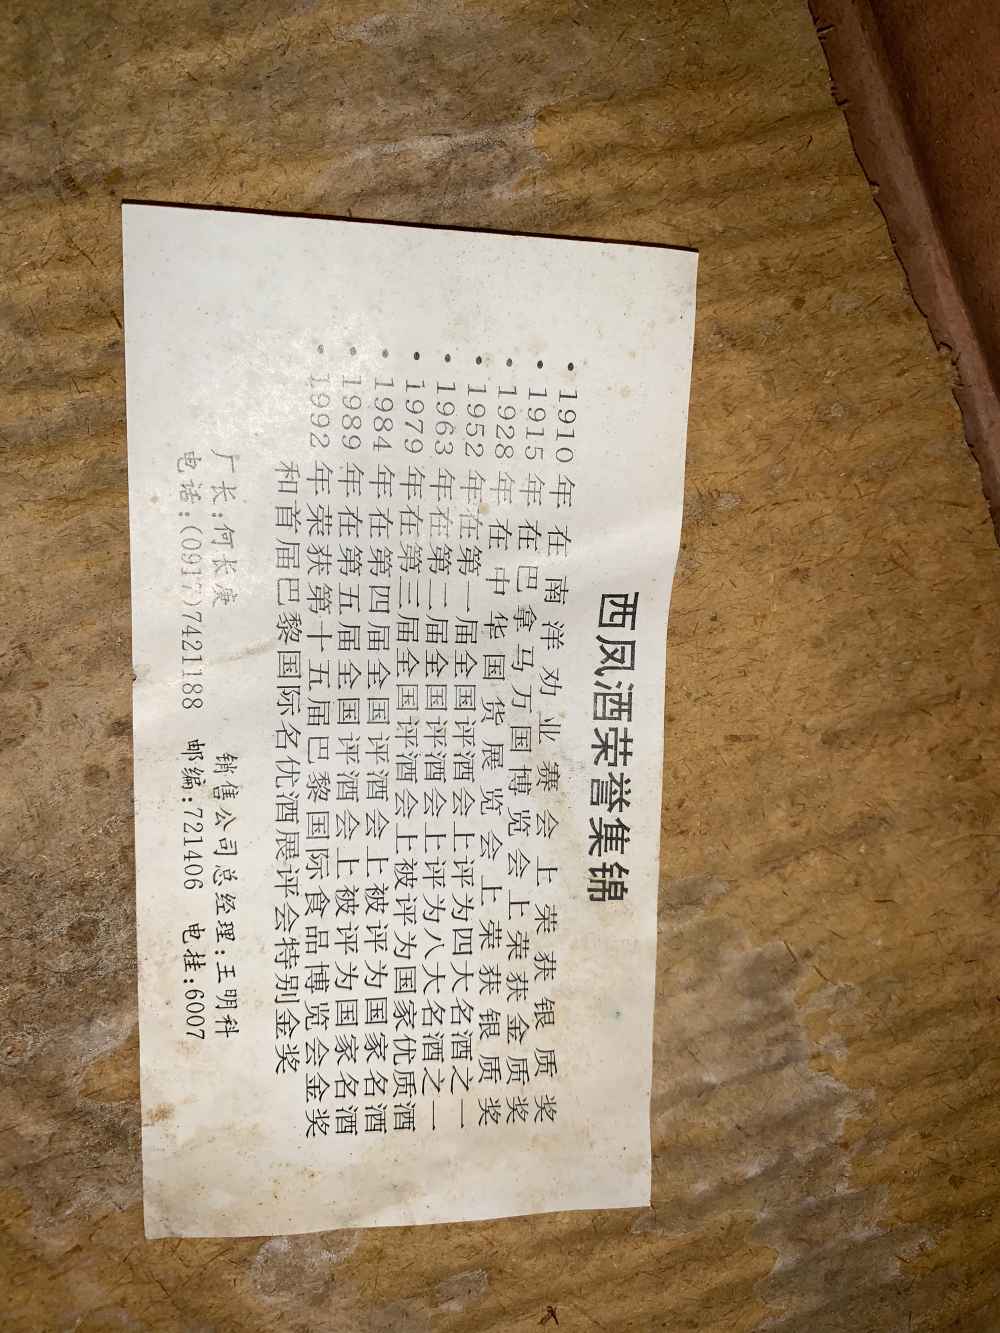 西凤酒荣誉集锦
• 1910 年在南洋劝业赛会上荣获银质奖
• 1915 年在巴拿马万国博览会上荣获金质奖
• 1928 年在中华国货展览会上荣获银质奖
• 1952 年在第一届全国评酒会上评为四大名酒之一
• 1963 年在第二届全国评酒会上评为八大名酒之一
• 1979 年在第三届全国评酒会上被评为国家优质酒
• 1984 年在第四届全国评酒会上被评为国家名酒
• 1989 年在第五届全国评酒会上被评为国家名酒
• 1992 年荣获第十五届巴黎国际食品博览会金奖
和首届巴黎国际名优酒展评会特别金奖
厂长:何长庚 销售公司总经理:王明科
电话:(0917)7421188 邮编:721406 电挂:6007